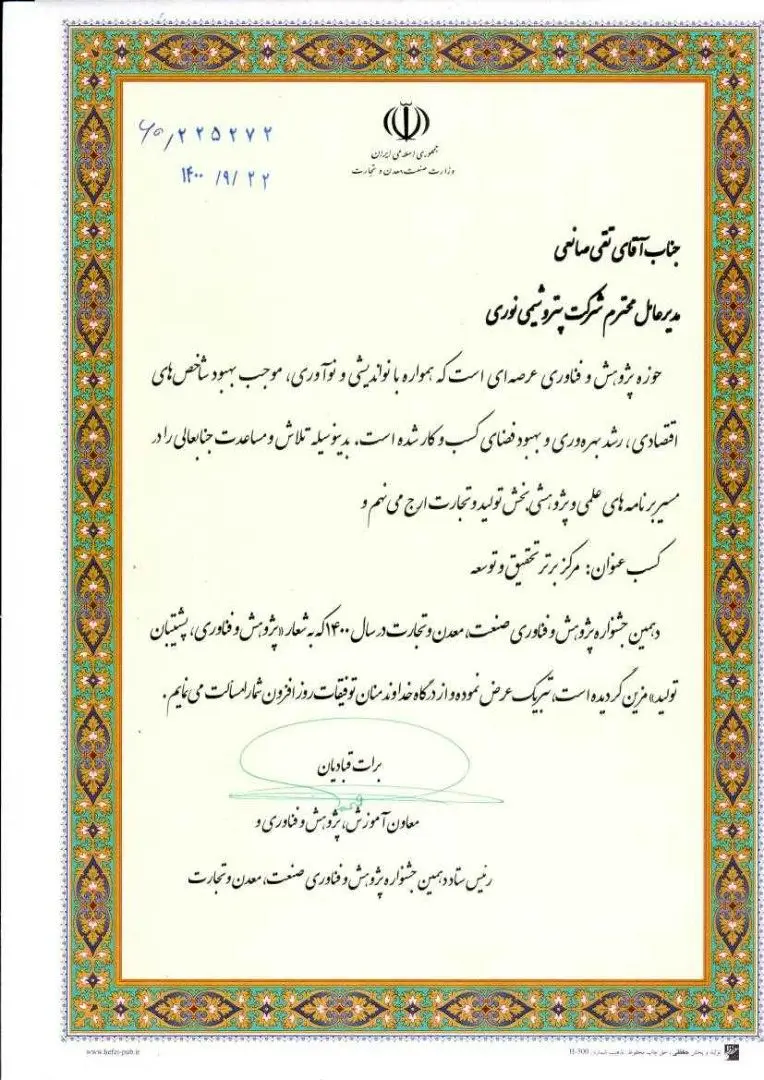 ۶۰/۲۲۵۲۷۲
۱۴۰۰/۹/۲۲
جمهوری اسلامی ایران
وزارت صنعت، معدن و تجارت
جناب آقای تقی صانعی
مدیرعامل محترم شرکت پتروشیمی نوری
حوزه پژوهش و فناوری عرصه‌ای است که همواره با نواندیشی و نوآوری، موجب بهبود شاخص‌های
اقتصادی، رشد بهره‌وری و بهبود فضای کسب و کار شده است. بدینوسیله تلاش و مساعدت جنابعالی را در
مسیر برنامه‌های علمی و پژوهشی بخش تولید و تجارت ارج می‌نهم و
کسب عنوان: مرکز برتر تحقیق و توسعه
دهمین جشنواره پژوهش و فناوری صنعت، معدن و تجارت در سال ۱۴۰۰ که به شعار «پژوهش و فناوری، پشتیبان
تولید» مزین گردیده است، تبریک عرض نموده و از درگاه خداوند منان توفیقات روزافزون شما را مسألت می‌نمایم.
برات قبادیان
معاون آموزش، پژوهش و فناوری و
رئیس ستاد دهمین جشنواره پژوهش و فناوری صنعت، معدن و تجارت
www.hefzi-pub.ir
تولید و پخش حفظی، حق چاپ محفوظ، تذهیب شماره: H-300